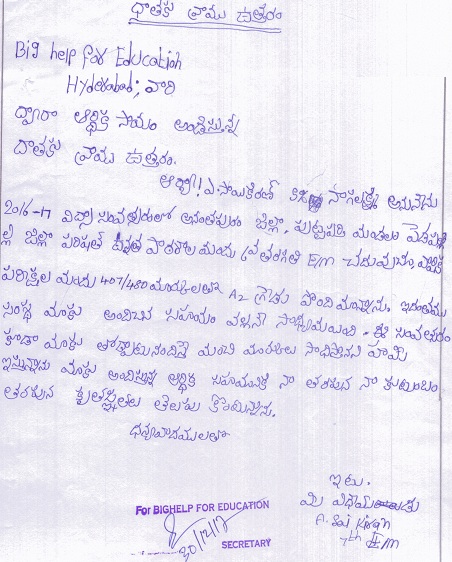 దాతకు వ్రాయు ఉత్తరం
Big help for Education
Hyderabad; వారి
ద్వారా ఆర్థిక సాయం అందిస్తున్న
దాతకు వ్రాయు ఉత్తరం.
ఆర్యా! ఎ. సాయికిరణ్
2016-17 విద్యా సంవత్సరంలో అనంతపురం జిల్లా, పుట్టపర్తి మండలం
జిల్లా పరిషత్ ఉన్నత పాఠశాల యందు E/m చదువుచు,
పరీక్షల యందు 407/480 మార్కులతో A2 గ్రేడు పొంది యున్నాను. ఇదంతయు
సంస్థ మాకు అందించిన సహాయం వల్లనే సాధ్యమయింది. ఈ సంవత్సరం
కూడా మాకు మంచి మార్కులు సాధిస్తానని హామీ
ఇస్తున్నాను మాకు అందిస్తున్న ఆర్థిక సహాయానికి నా తరపున నా కుటుంబం
తరపున కృతజ్ఞతలు తెలుపు కొంటున్నాను.
ధన్యవాదములతో
ఇటు.
మీ
A. Sai Kiran
7th E/m
For BIGHELP FOR EDUCATION
20/12/17
SECRETARY